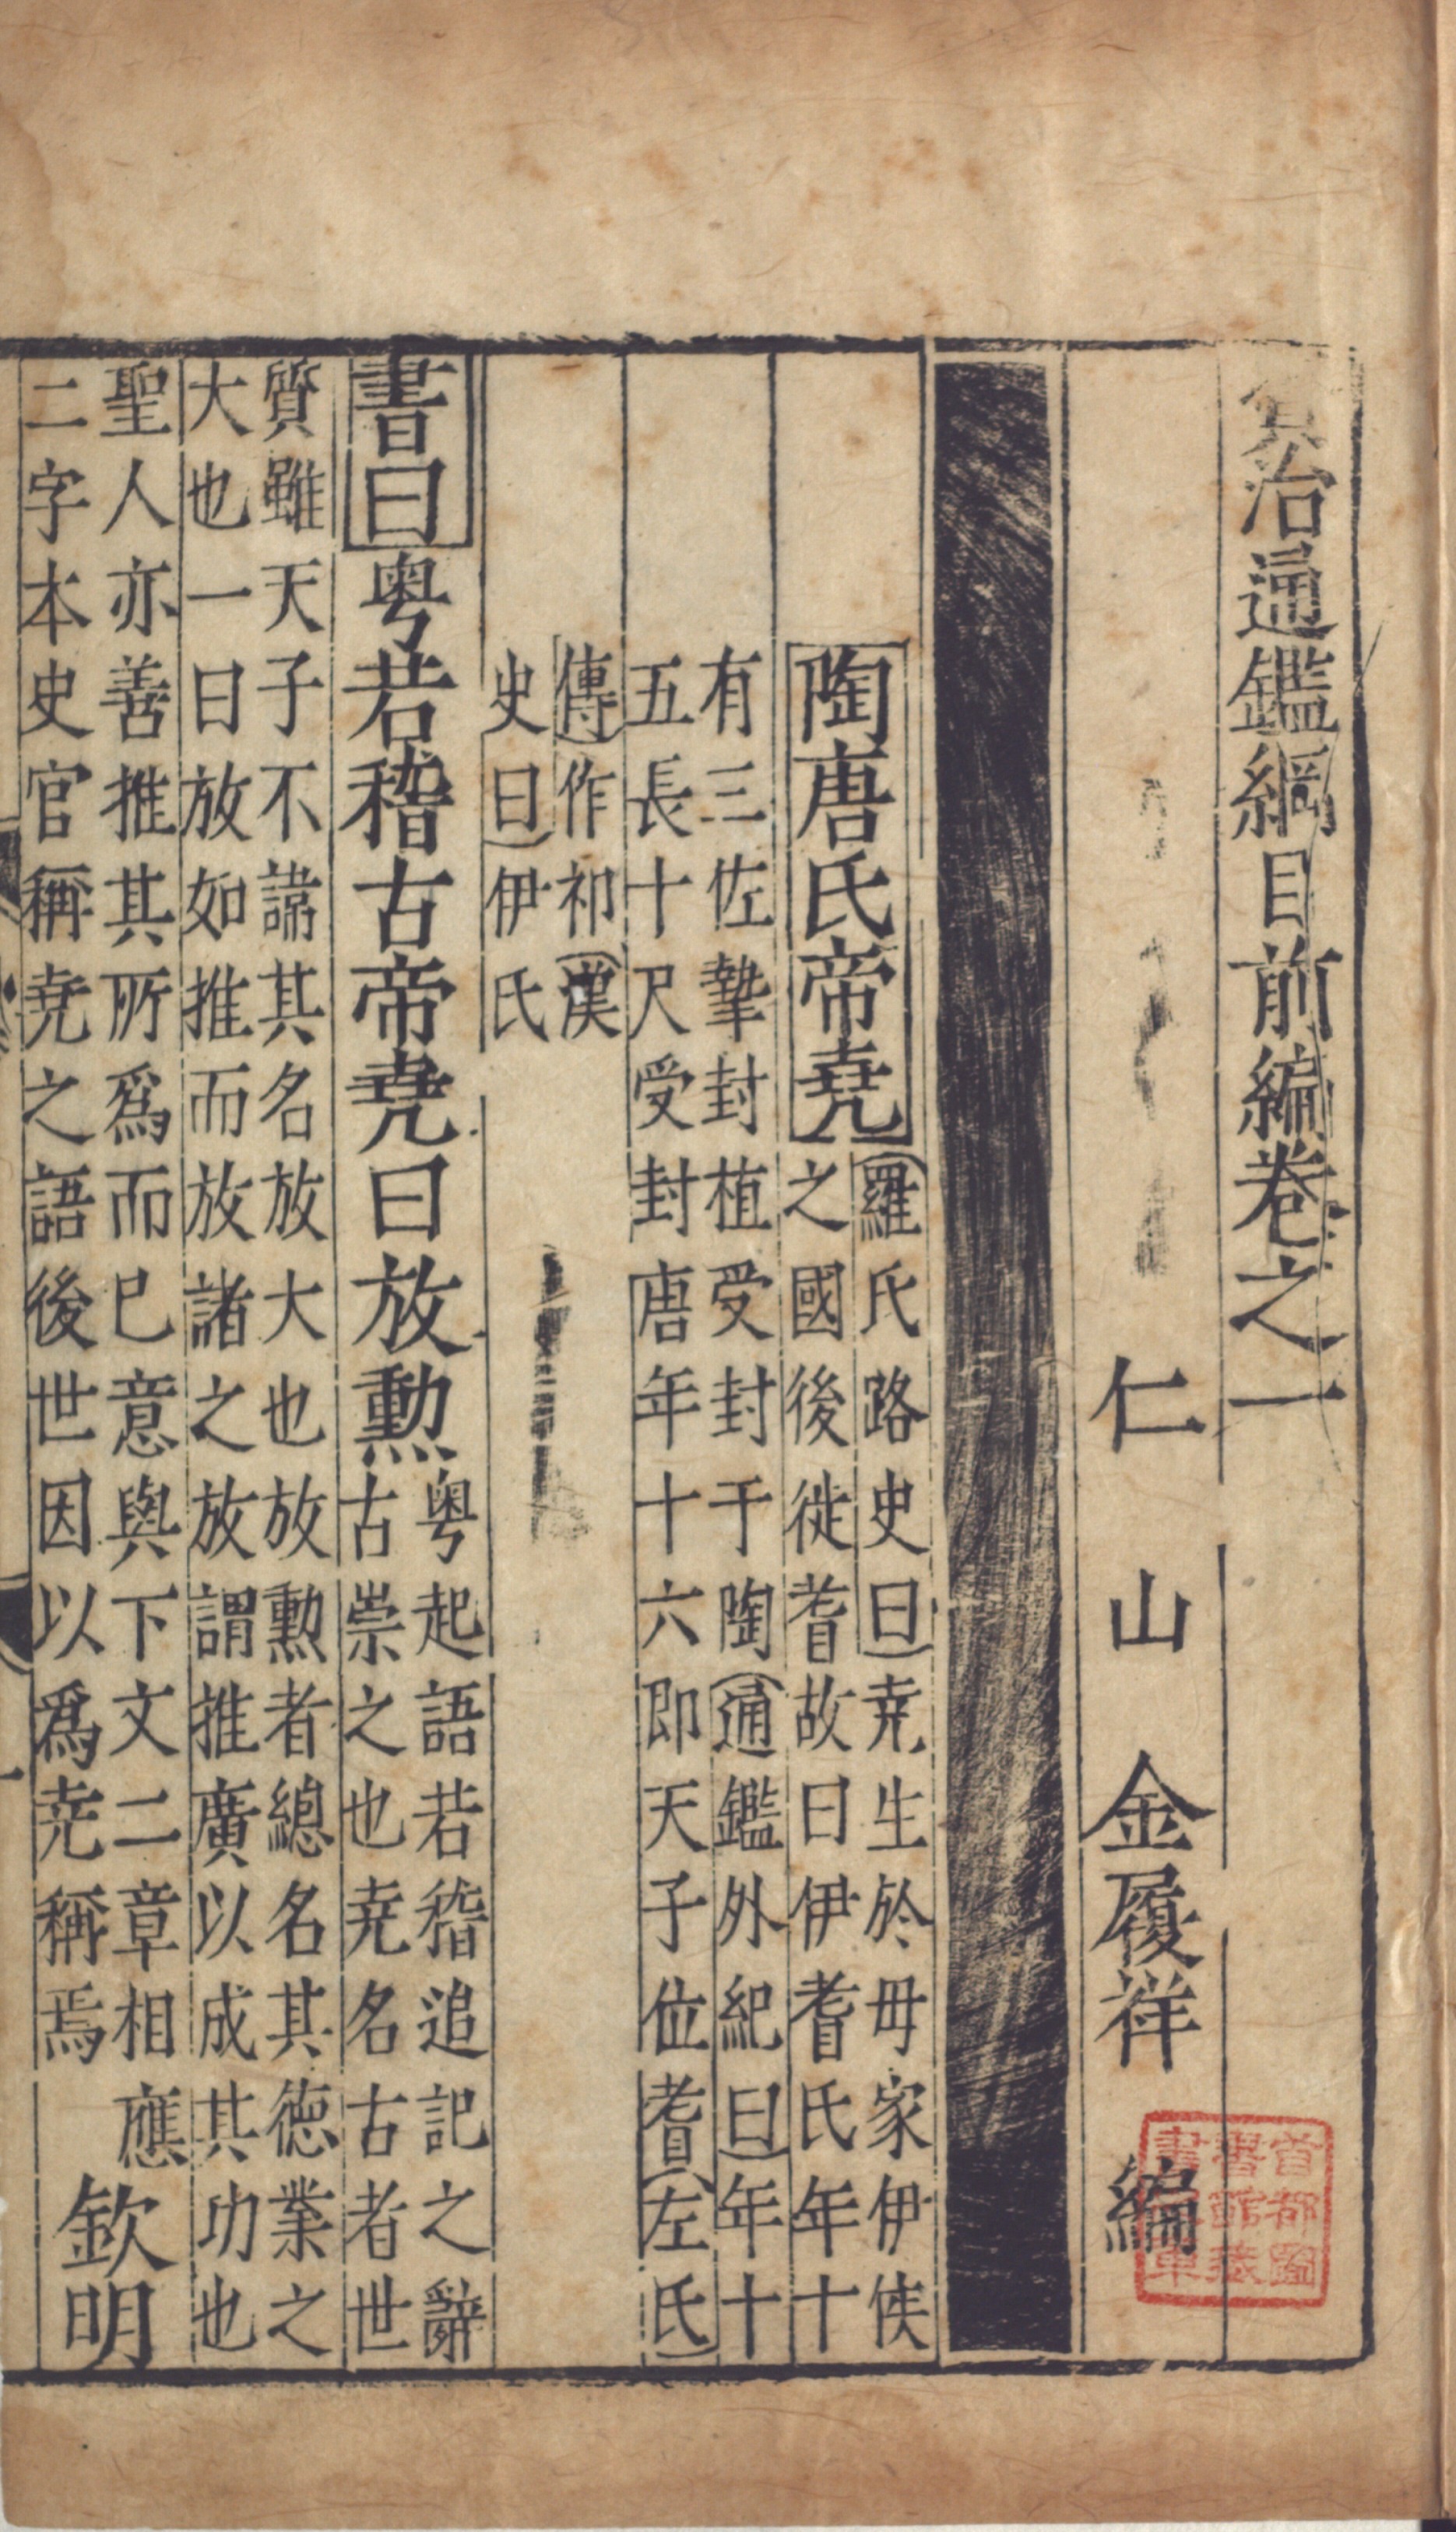 資治通鑑綱目前編卷之一
仁山金履祥編
陶唐氏帝堯
羅氏路史曰尭生於母家伊侯
之國後徙耆故曰伊耆氏年十
有三佐摯封植受封于陶通鑑外紀曰年十
五長十尺受封唐年十六即天子位耆左氏
傳作祁漢
史曰伊氏
書曰粤若稽古帝堯曰放勲
粤起語若稽追記之辭
古崇之也尭名古者世
質雖天子不諱其名放大也放勲者總名其徳業之
大也一曰放如推而放諸之放謂推廣以成其功也
聖人亦善推其所爲而已意與下文二章相應
二字本史官稱尭之語後世因以爲尭稱焉
欽明
首都圖
書館藏
書